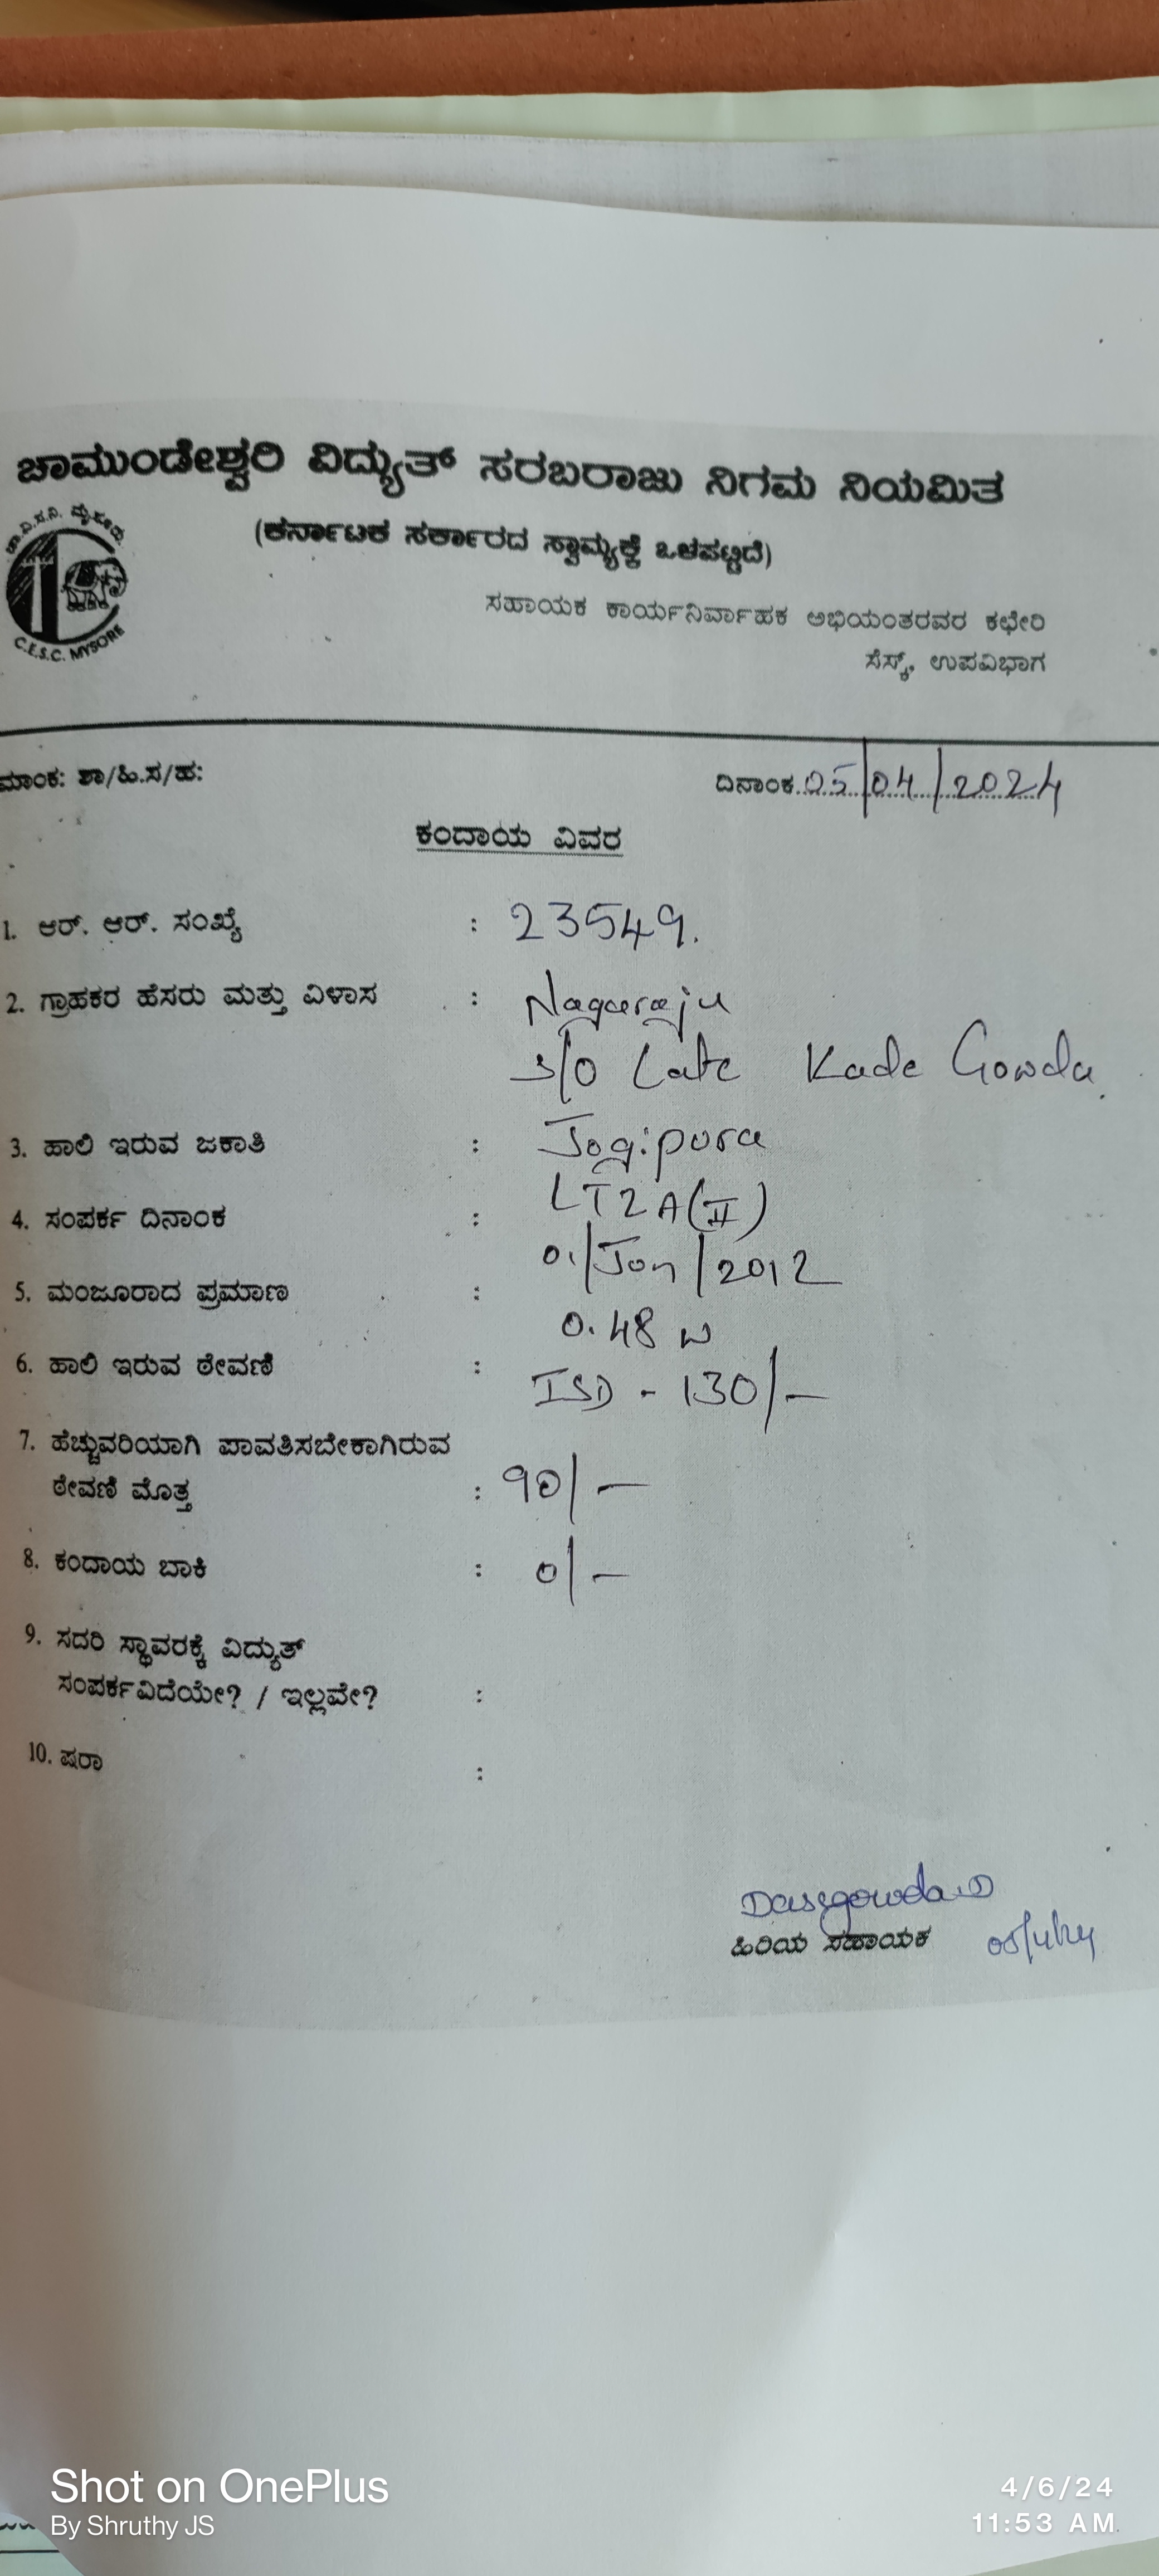 ಚಾಮುಂಡೇಶ್ವರಿ ವಿದ್ಯುತ್ ಸರಬರಾಜು ನಿಗಮ ನಿಯಮಿತ
(ಕರ್ನಾಟಕ ಸರ್ಕಾರದ ಸ್ವಾಮ್ಯಕ್ಕೆ ಒಳಪಟ್ಟಿದೆ)
ಚಾ.ವಿ.ಸ.ನಿ. ಮೈಸೂರು.
C.E.S.C. MYSORE
ಸಹಾಯಕ ಕಾರ್ಯನಿರ್ವಾಹಕ ಅಭಿಯಂತರವರ ಕಛೇರಿ
ಸೆಸ್ಕ್, ಉಪವಿಭಾಗ
ಮಾಂಕ: ಶಾ/ಹಿ.ಸ/ಹ: ದಿನಾಂಕ 05/04/2024
ಕಂದಾಯ ವಿವರ
1. ಆರ್. ಆರ್. ಸಂಖ್ಯೆ : 23549.
2. ಗ್ರಾಹಕರ ಹೆಸರು ಮತ್ತು ವಿಳಾಸ : Nagaraju
S/O Late Kade Gowda
3. ಹಾಲಿ ಇರುವ ಜಕಾತಿ : Jogipura
LT2A(II)
4. ಸಂಪರ್ಕ ದಿನಾಂಕ :
01/Jan/2012
5. ಮಂಜೂರಾದ ಪ್ರಮಾಣ :
0.48 W
6. ಹಾಲಿ ಇರುವ ಠೇವಣಿ :
ISD - 130/-
7. ಹೆಚ್ಚುವರಿಯಾಗಿ ಪಾವತಿಸಬೇಕಾಗಿರುವ
ಠೇವಣಿ ಮೊತ್ತ : 90/-
8. ಕಂದಾಯ ಬಾಕಿ : 0/-
9. ಸದರಿ ಸ್ಥಾವರಕ್ಕೆ ವಿದ್ಯುತ್
ಸಂಪರ್ಕವಿದೆಯೇ? / ಇಲ್ಲವೇ? :
10. ಷರಾ :
Dasegowda.D
ಹಿರಿಯ ಸಹಾಯಕ 05/4/24
Shot on OnePlus
By Shruthy JS
4/6/24
11:53 AM